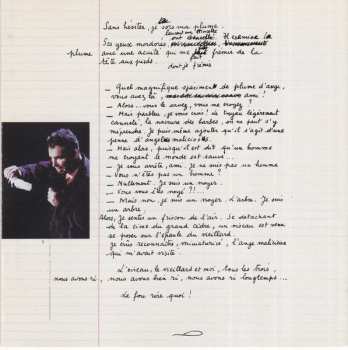 Sans hésiter, je sors ma plume.
Ses yeux mordorés,
plume avec une acuité qui me fait frémir de la
tête aux pieds.
dont je frémis
_ Quel magnifique specimen de plume d'ange,
vous avez là, ami !
_ Alors... vous le savez, vous me croyez ?
_ Mais parbleu, je vous crois ! Le tuyau légèrement
cannelé, la nacrure des barbes, on ne peut s'y
méprendre. Je puis même ajouter qu'il s'agit d'une
penne d'angelus maliciosus.
_ Mais alors, puisqu'il est dit qu'un homme
me croyant le monde est sauvé...
_ Je vous arrête, ami, je ne suis pas un homme
_ Vous n'êtes pas un homme ?
_ Nullement. Je suis un noyer.
_ Vous vous êtes noyé ?!
_ Mais non, je suis un noyer. L'arbre. Je suis
un arbre.
Alors, Je sentis un frisson de l'air. Se détachant
de la cime du grand cèdre, un oiseau est venu
se poser sur l'épaule du vieillard.
Je crus reconnaître, miniaturisé, l'ange malicieux
qui m'avait visité.
L'oiseau, le vieillard et moi, tous les trois,
nous avons ri, nous avons bien ri, nous avons ri longtemps...
Le fou rire quoi !